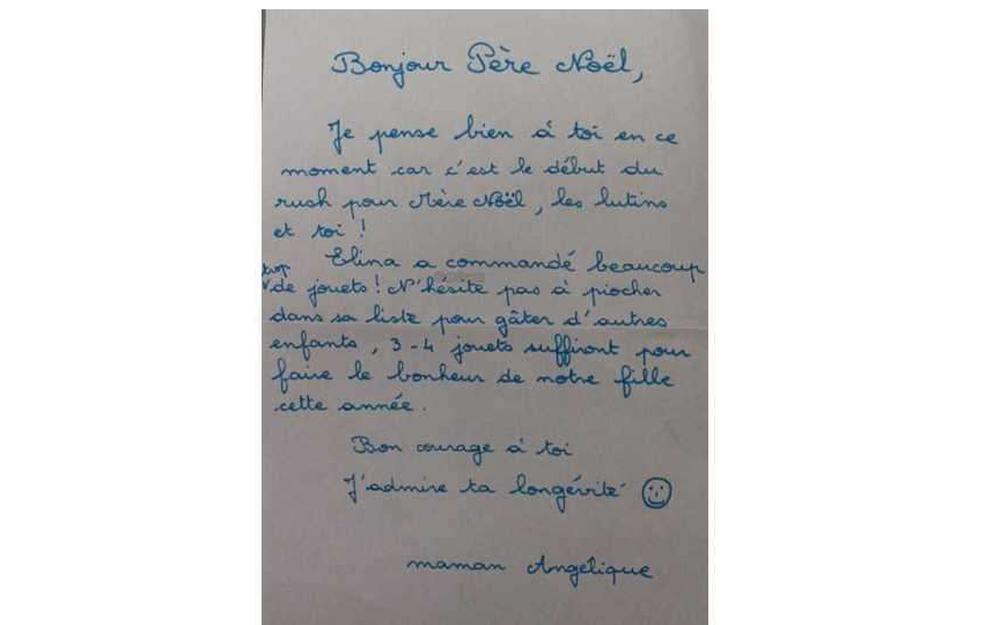 Bonjour Père Noël,
Je pense bien à toi en ce
moment car c'est le début du
rush pour Mère Noël, les lutins
et toi !
Elina a commandé beaucoup
trop
de jouets ! N'hésite pas à piocher
dans sa liste pour gâter d'autres
enfants, 3-4 jouets suffiront pour
faire le bonheur de notre fille
cette année.
Bon courage à toi
J'admire ta longévité
maman Angélique